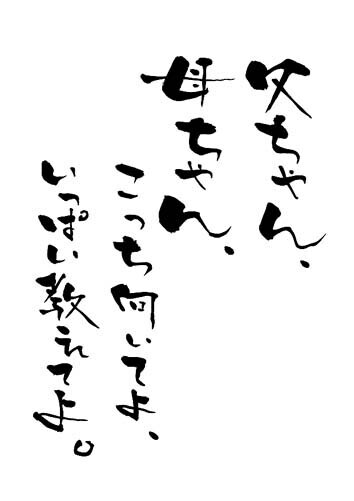 父ちゃん、
母ちゃん、
こっち向いてよ、
いっぱい教えてよ。